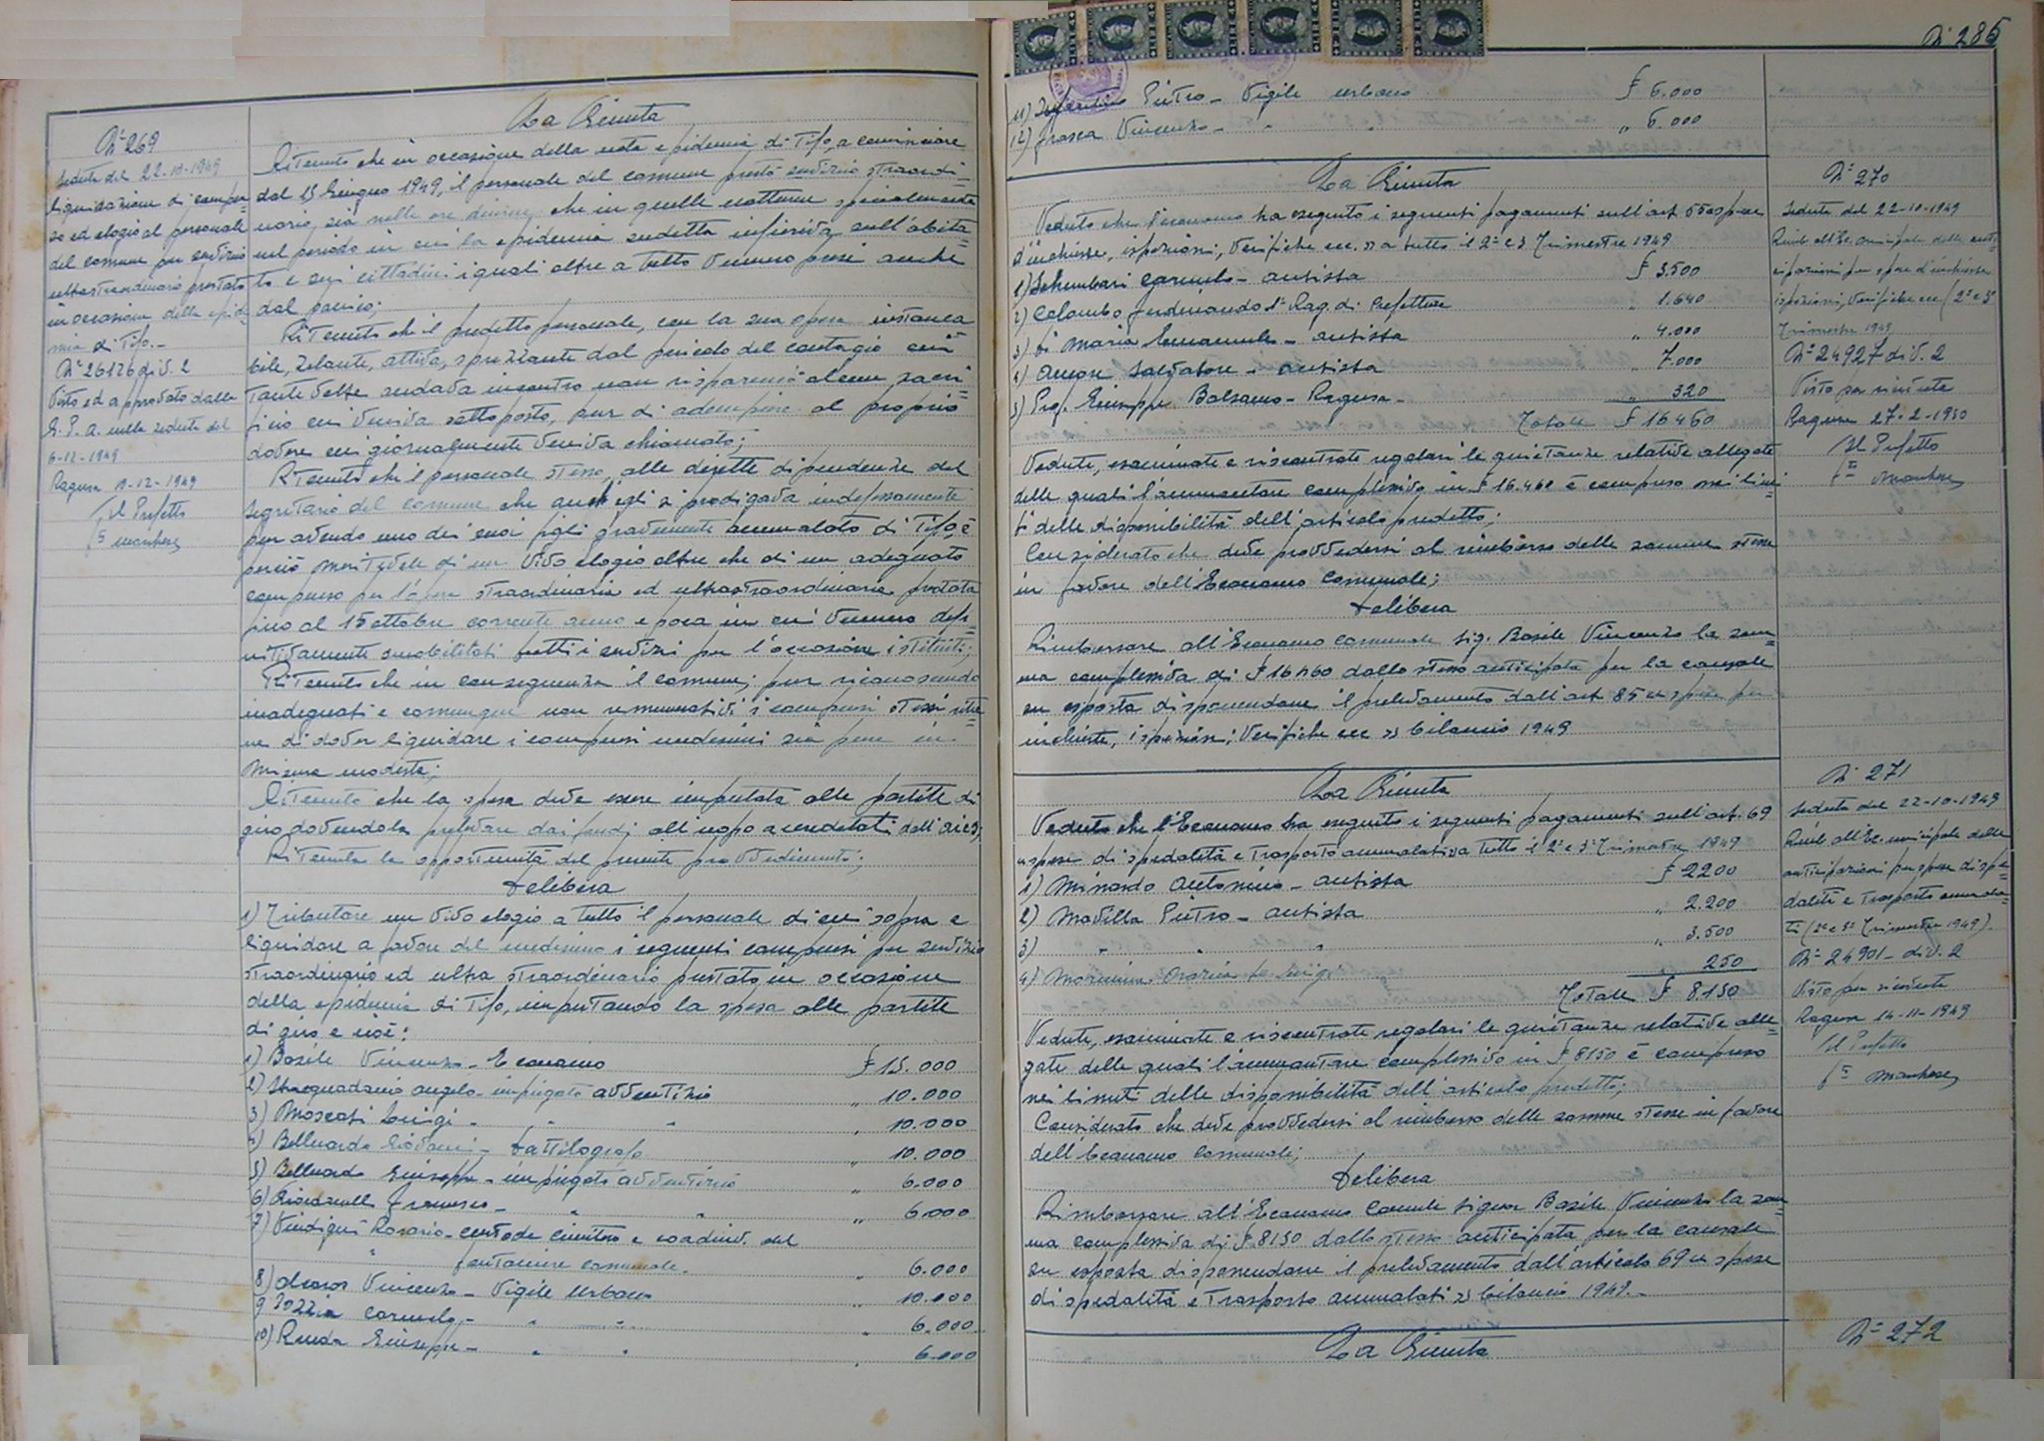 N° 269
Seduta del 22-10-1949
liquidazione di compen-
so ed elogio al personale
del comune per servizio
ultrastraordinario prestato
in occasione della epide-
mia di Tifo.-
N° 26126 div. 2
Visto ed approvato dalla
G. P. A. nella seduta del
6-12-1949
Ragusa 11-12-1949
Il Prefetto
La Giunta
Ritenuto che in occasione della nota epidemia di Tifo, a cominciare
dal 15 Giugno 1949, il personale del comune prestò servizio straordi-
nario, sia nelle ore diurne che in quelle notturne specialmente
nel periodo in cui la epidemia sudetta infieriva sull'abita-
to e sui cittadini i quali oltre a tutto vennero presi anche
dal panico;
Ritenuto che il predetto personale, con la sua opera instanca
bile, zelante, attiva, sprezzante del pericolo del contagio cui
tante volte andava incontro non risparmiò alcun sacri
ficio cui veniva sottoposto, pur di adempiere al proprio
dovere cui giornalmente veniva chiamato;
Ritenuto che il personale stesso, alle dirette dipendenze del
segretario del comune che anch'egli si prodigava indefessamente
pur avendo uno dei suoi figli gravemente ammalato di Tifo, è
perciò meritevole di un vivo elogio oltre che di un adeguato
compenso per l'opera straordinaria ed ultrastraordinaria prestata
fino al 15 ottobre corrente anno epoca in cui vennero defi-
nitivamente smobilitati tutti i servizi per l'occasione istituiti;
Ritenuto che in conseguenza il comune; pur riconoscendo
inadeguati e comunque non remunerativi i compensi stessi ritie
ne di dover liquidare i compensi medesimi sia pure in
misura modesta;
Ritenuto che la spesa deve essere imputata alle partite di
giro dovendola prelevare dai fondi all'uopo accreditati
Ritenuta la opportunità del presente provvedimento;
Delibera
1) Tributare un vivo elogio a tutto il personale di cui sopra e
liquidare a favore del medesimo i seguenti compensi per servizio
straordinario ed ultra straordinario prestato in occasione
della epidemia di Tifo, imputando la spesa alle partite
di giro e cioè:
1) Basile Vincenzo - Economo £ 15.000
2) Stracquadanio Angelo - impiegato avventizio " 10.000
3) Moscati Luigi - " " " 10.000
4) Belluardo Giovanni - Dattilografo " 10.000
5) Belluardo Giuseppe - impiegato avventizio " 6.000
6) Francesco - " " " 6.000
7) Vindigni Rosario - custode cimitero e coadiuv. del
fontaniere comunale. " 6.000
8) Vincenzo - Vigile Urbano " 10.000
9) Carmelo - " " " 6.000
10) Ruda Giuseppe - " " " 6.000
N° 285
11) Pietro - Vigile urbano £ 6.000
12) Vincenzo - " " " 6.000
La Giunta
Veduto che l'economo ha eseguito i seguenti pagamenti sull'art spese
d'inchieste, ispezioni, verifiche ecc. » a tutto il 2° e 3 Trimestre 1949
1) Schembari Carmelo - autista £ 3.500
2) Colombo Ferdinando 1° Rag. di Prefettura " 1.640
3) Di Maria Emanuele - autista " 4.000
4) Amore Salvatore - autista " 7.000
5) Prof. Giuseppe Balsamo - Ragusa - " 320
Totale £ 16460
Vedute, esaminate e riscontrate regolari le quietanze relative allegate
delle quali l'ammontare complessivo in £ 16.460 è compreso nei limi
ti delle disponibilità dell'articolo predetto;
Considerato che deve provvedersi al rimborso delle somme stesse
in favore dell'Economo Comunale;
Delibera
Rimborsare all'Economo Comunale Sig. Basile Vincenzo la som-
ma complessiva di £ 16460 dallo stesso anticipata per la causale
su esposta disponendone il prelevamento dall'art. 85 « spese per
inchieste, ispezioni, verifiche ecc » bilancio 1949
N° 270
Seduta del 22-10-1949
Rimb. all'Ec. municipale delle anti-
cipazioni per spese d'inchieste
ispezioni, verifiche ecc (2° e 3°
Trimestre 1949
N° 24927 div. 2
Visto per ricevuta
Ragusa 27-2-1950
Il Prefetto
La Giunta
Veduto che l'Economo ha eseguito i seguenti pagamenti sull'art. 69
« spese di spedalità e trasporto ammalati » a tutto il 2° e 3° Trimestre 1949
1) Minardo Antonino - autista £ 2200
2) Mavilla Pietro - autista " 2.200
3) " " " " 3.500
4) Maria " 250
Totale £ 8150
Vedute, esaminate e riscontrate regolari le quietanze relative alle-
gate delle quali l'ammontare complessivo in £ 8150 è compreso
nei limiti delle disponibilità dell'articolo predetto;
Considerato che deve provvedersi al rimborso delle somme stesse in favore
dell'Economo Comunale;
Delibera
Rimborsare all'Economo Comunale Signor Basile Vincenzo la som-
ma complessiva di £ 8150 dallo stesso anticipata per la causale
su esposta disponendone il prelevamento dall'articolo 69 « spese
di spedalità e trasporto ammalati » bilancio 1949.-
N° 271
Seduta del 22-10-1949
Rimb. all'Ec. municipale delle
anticipazioni per spese di spe-
dalità e trasporto ammala-
ti (2° e 3° Trimestre 1949).
N° 24901 - div. 2
Visto per ricevuta
Ragusa 14-11-1949
Il Prefetto
La Giunta
N° 272